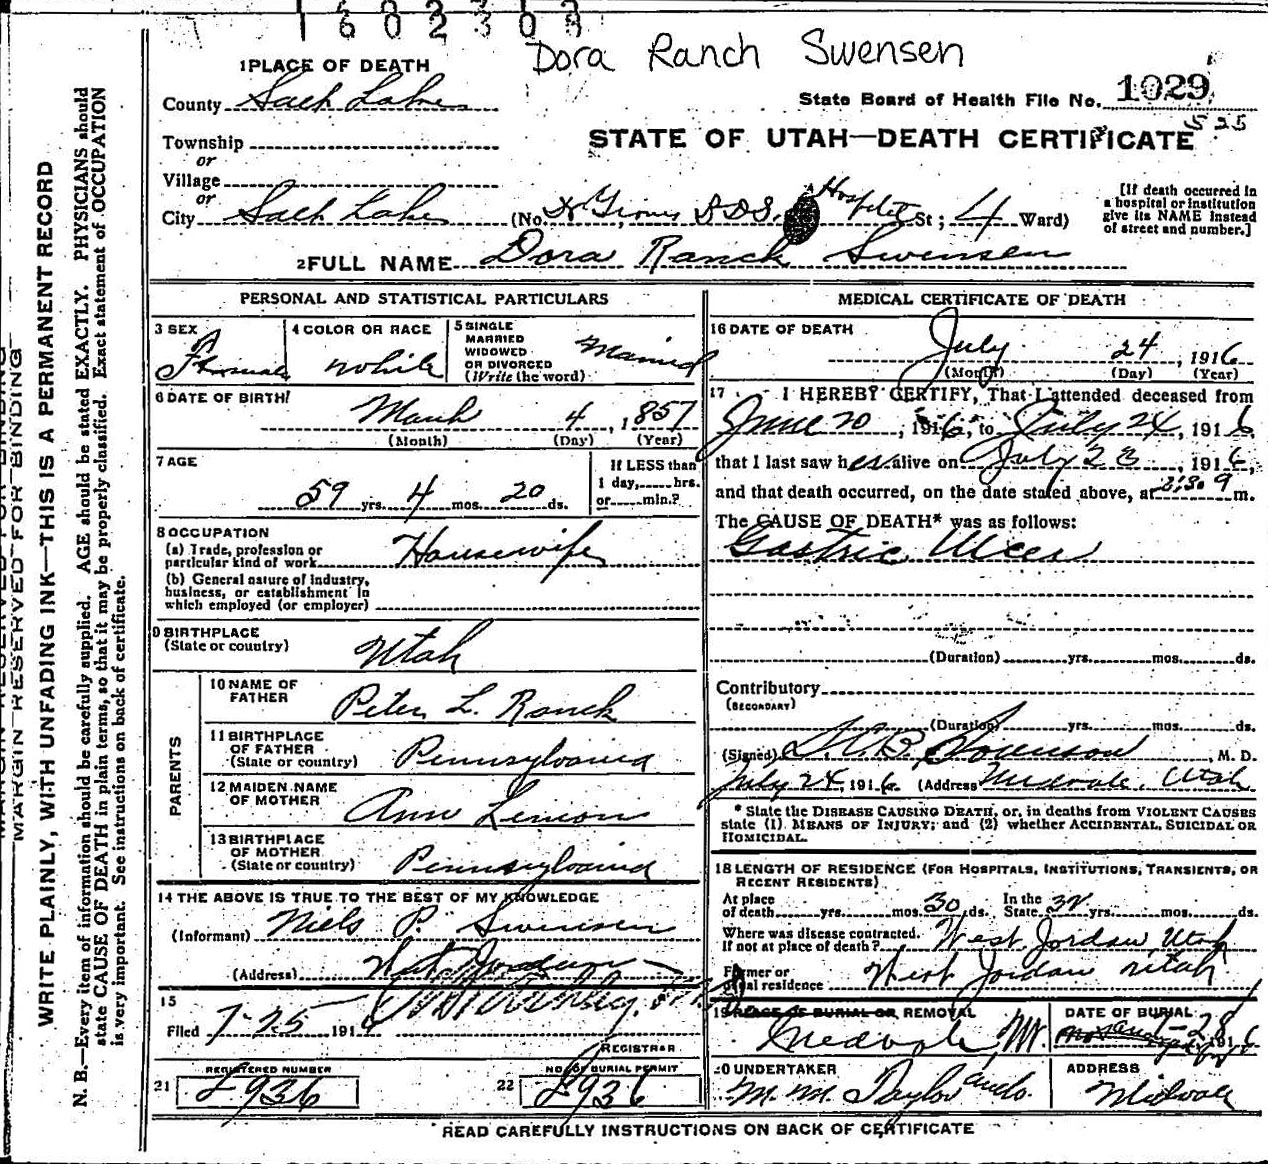 1602303
Dora Ranch Swensen
1 PLACE OF DEATH
County Salt Lake
State Board of Health File No. 1029
525
STATE OF UTAH—DEATH CERTIFICATE
Township
or
Village
or
City Salt Lake (No. L.D.S. Hospital St; 4 Ward)
[If death occurred in
a hospital or institution
give its NAME instead
of street and number.]
2 FULL NAME Dora Ranck Swensen
PERSONAL AND STATISTICAL PARTICULARS
3 SEX Female
4 COLOR OR RACE white
5 SINGLE
MARRIED
WIDOWED
OR DIVORCED
(Write the word) Married
6 DATE OF BIRTH
March 4, 1857
(Month) (Day) (Year)
7 AGE
59 yrs. 4 mos. 20 ds.
If LESS than
1 day, hrs.
or min.?
8 OCCUPATION
(a) Trade, profession or
particular kind of work Housewife
(b) General nature of industry,
business, or establishment in
which employed (or employer)
9 BIRTHPLACE
(State or country) Utah
PARENTS
10 NAME OF
FATHER Peter L. Ranck
11 BIRTHPLACE
OF FATHER
(State or country) Pennsylvania
12 MAIDEN NAME
OF MOTHER Ann Lemon
13 BIRTHPLACE
OF MOTHER
(State or country) Pennsylvania
14 THE ABOVE IS TRUE TO THE BEST OF MY KNOWLEDGE
(Informant) Niels P. Swensen
(Address) West Jordan
15
Filed 7-25 191
REGISTRAR
REGISTERED NUMBER
21 L936
NO. OF BURIAL PERMIT
22 L936
MEDICAL CERTIFICATE OF DEATH
16 DATE OF DEATH
July 24, 1916
(Month) (Day) (Year)
17 I HEREBY CERTIFY, That I attended deceased from
June 20, 1916, to July 24, 1916,
that I last saw her alive on July 23, 1916,
and that death occurred, on the date stated above, at m.
The CAUSE OF DEATH* was as follows:
Gastric Ulcer
(Duration) yrs. mos. ds.
Contributory
(SECONDARY)
(Duration) yrs. mos. ds.
(Signed) Sorenson, M. D.
July 24, 1916. (Address) Midvale, Utah
* State the DISEASE CAUSING DEATH, or, in deaths from VIOLENT CAUSES
state (1) MEANS OF INJURY; and (2) whether ACCIDENTAL, SUICIDAL OR
HOMICIDAL.
18 LENGTH OF RESIDENCE (FOR HOSPITALS, INSTITUTIONS, TRANSIENTS, OR
RECENT RESIDENTS)
At place
of death yrs. mos. 30 ds.
In the
State yrs. mos. ds.
Where was disease contracted.
If not at place of death? West Jordan Utah
Former or
usual residence West Jordan Utah
19 PLACE OF BURIAL OR REMOVAL
DATE OF BURIAL
1916
20 UNDERTAKER
M. M. Taylor and Co.
ADDRESS
Midvale
READ CAREFULLY INSTRUCTIONS ON BACK OF CERTIFICATE
MARGIN RESERVED FOR BINDING
WRITE PLAINLY, WITH UNFADING INK—THIS IS A PERMANENT RECORD
N. B.—Every item of information should be carefully supplied. AGE should be stated EXACTLY. PHYSICIANS should
state CAUSE OF DEATH in plain terms, so that it may be properly classified. Exact statement of OCCUPATION
is very important. See instructions on back of certificate.